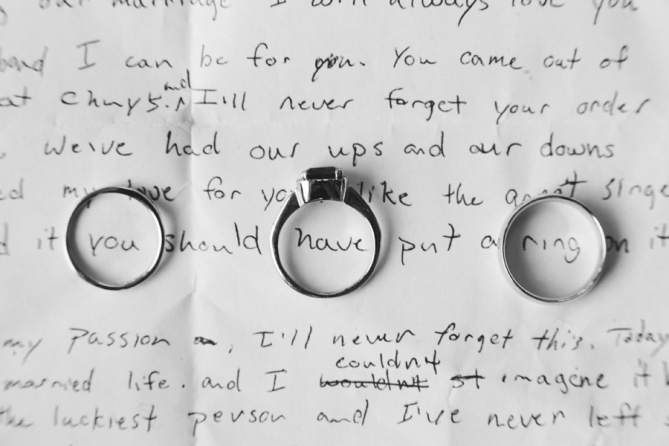 our marriage I will always love you
band I can be for you. You came out of
at Chuy's. and I'll never forget your order
We've had our ups and our downs
ed my love for you like the great singe
d it you should have put a ring on it
my passion, I'll never forget this. Today
married life. and I couldn't imagine it
the luckiest person and I've never left